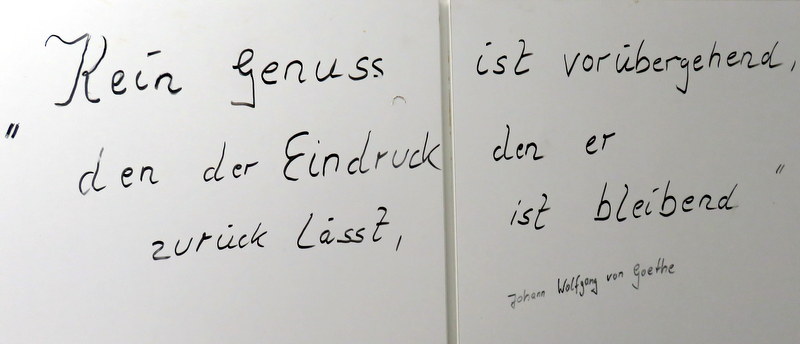 „Kein Genuss ist vorübergehend,
den der Eindruck den er
zurück lässt, ist bleibend"
Johann Wolfgang von Goethe